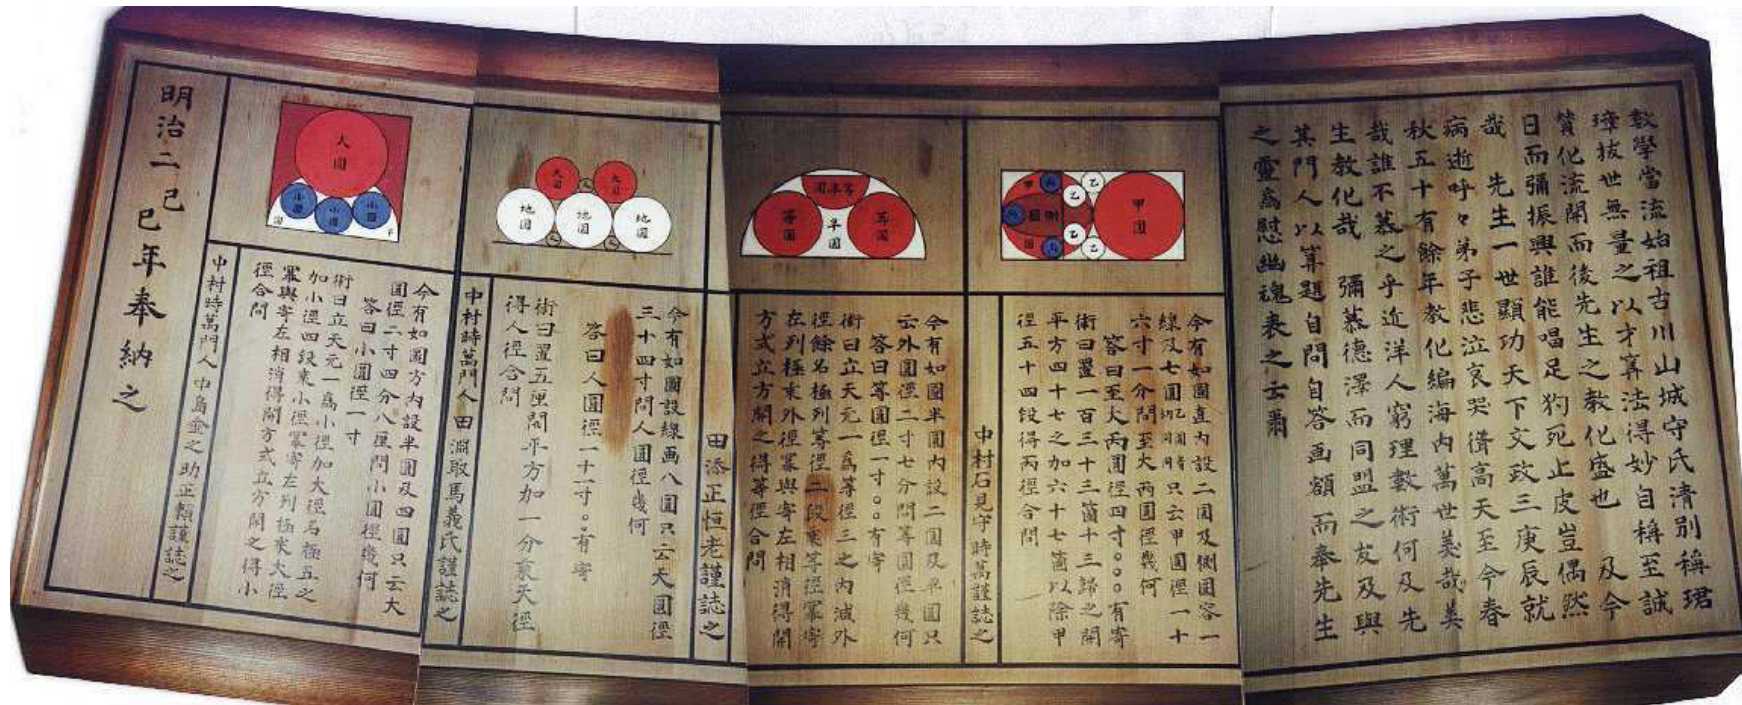 數學當流始祖古川山城守氏清別稱珺
璋拔世無量之以才算法得妙自稱至誠
賛化流開而後先生之教化盛也 及今
日而彌振興誰能唱足犳死止皮豈偶然
哉 先生一世顯功天下文政三庚辰就
病逝呼々弟子悲泣哀哭徳高天至今春
秋五十有餘年教化編海内萬世美哉美
哉誰不慕之乎近洋人窮理數術何及先
生教化哉 彌慕德澤而同盟之友及與
其門人以算題自問自答画額而奉先生
之靈爲慰幽魂表之云爾
甲圓
乙
乙
乙
乙
側圓
今有如圖直内設二圓及側圓容一
線及七圓 只云甲圓徑一十
六寸一分問至大丙圓徑幾何
答曰至大丙圓徑四寸。。。有寄
術曰置一百三十三箇十三歸之開
平方四十七之加六十七箇以除甲
徑五十四段得丙徑合問
中村石見守時萬謹誌之
等半圓
等圓
半圓
等圓
今有如圖半圓内設二圓及半圓只
云外圓徑二寸七分問等圓徑幾何
答曰等圓徑一寸。。有寄
術曰立天元一爲等徑三之内減外
徑餘名極列等徑二段乗等徑冪寄
在列極乗外徑冪與寄左相消得開
方式立方開之得等徑合問
田添正恒老謹誌之
大圓
大圓
地圓
地圓
地圓
今有如圖設線画八圓只云大圓徑
三十四寸問人圓徑幾何
答曰人圓徑一十一寸。有寄
術曰置五厘開平方加一分乗天徑
得人徑合問
中村時萬門人田淵取馬義氏謹誌之
大圓
小圓
小圓
小圓
今有如圖方内設半圓及四圓只云大
圓徑二寸四分八厘問小圓徑幾何
答曰小圓徑一寸
術曰立天元一爲小徑加大徑名極五之
加小徑四段乗小徑冪寄左列極乗大徑
冪與寄左相消得開方式立方開之得小
徑合問
中村時萬門人中島金之助正頼謹誌之
明治二己
巳年奉納之